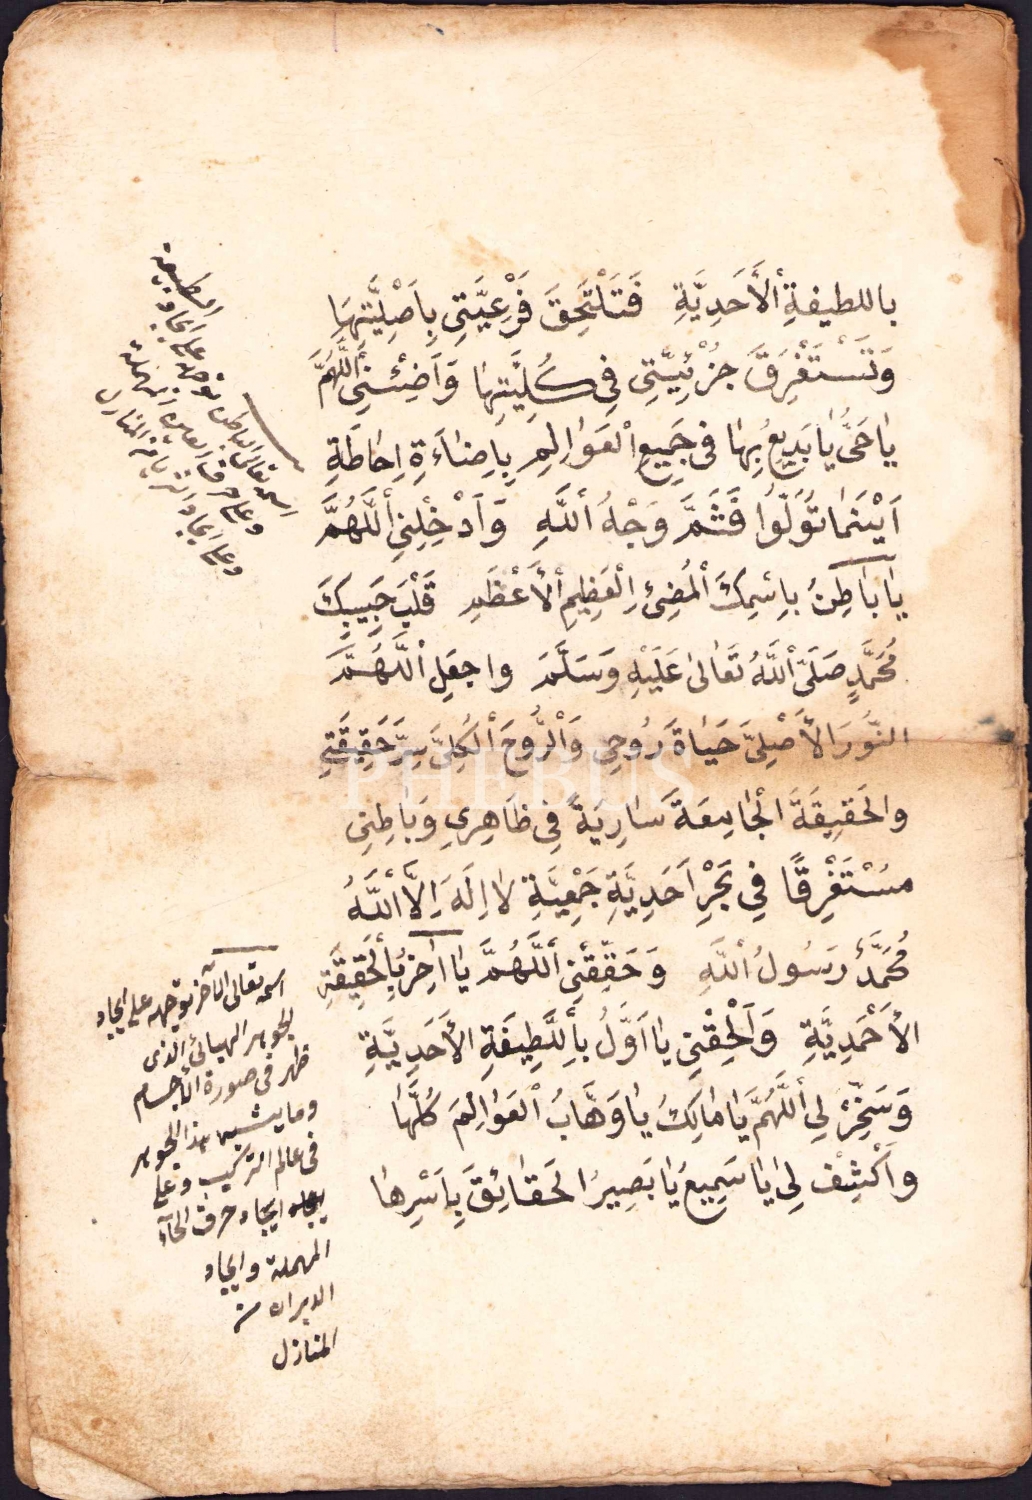 باللطيفةِ ٱلأَحَدِيَّةِ فَتَلْتَحِقَ فَرْعِيَّتِي بِاَصْلِيَّتِهَا
وَتَسْتَغْرِقَ جُزْئِيَّتِي فِي كُلِيَّتِهَا وَاَضِئْنِي ٱللَّهُمَّ
يَا حَىُّ يَا بَدِيعُ بِهَا فى جَمِيعِ ٱلعَوَالِمِ بِاِضَاءَةِ اِحَاطَةِ
اَيْنَمَا تُوَلّوُا فَثَمَّ وَجْهُ ٱللَّهِ وَاَدْخِلْنِي ٱللَّهُمَّ
يَا بَاطِنُ بِاِسْمِكَ ٱلمُضِئِ ٱلْعَظِيمِ ٱلأَعْظَمِ قَلْبَ حَبِيبِكَ
مُحَمَّدٍ صَلَّى ٱللَّهُ تَعَالىٰ عَلَيْهِ وَسَلَّمَ واجعَلِ ٱللَّهُمَّ
النُّورَ الأَصْلِىَّ حَيَاةَ رُوحِي وَٱلرُّوحَ ٱلكُلِىَّ سِرَّ حَقِيقَتِي
والحَقِيقَةَ ٱلجَامِعَةَ سَارِيَةً فِي ظَاهِرِي وَبَاطِنِي
مُسْتَغْرِقًا فِي بَحْرِ اَحَدِيَّةِ جَمْعِيَّةِ لاٰ اِلَهَ اِلاَّ ٱللَّهُ
مُحَمَّدٌ رَسُولُ ٱللَّهِ وَحَقِّقْنِي ٱللَّهُمَّ يَا اٰخِرُ بِٱلحَقِيقَةِ
الأَحْمَدِيَّةِ وَٱلْحِقْنِي يَا اَوَّلُ بِٱللَّطِيفَةِ الأَحَدِيَّةِ
وَسَخِّرْ لِي ٱللَّهُمَّ يَا مَالِكُ يَا وَهَّابُ ٱلعَوَالِمَ كُلَّهَا
واَكْشِفْ لِي يَا سَمِيعُ يَا بَصِيرُ الحَقَائِقَ بِاَسْرِهَا
اسمه تعالى الباطن توجه على ايجاد الطبيعة
وعلى حرف
وعلى ايجاد الثريا من المنازل
اسمه تعالى الآخر توجهه على ايجاد
الجوهر الهبائي الذى
ظهر فى صورة الأجسام
وما يشبه هذا الجوهر
فى عالم التركيب وعلى
ايجاد حرف الحآء
المهملة وايجاد
الدبران من
المنازل
PHEBUS